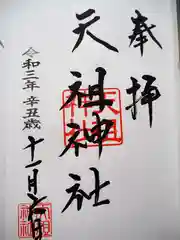 奉拝
天祖神社
令和三年 辛丑歳
十一月六日
天祖神社